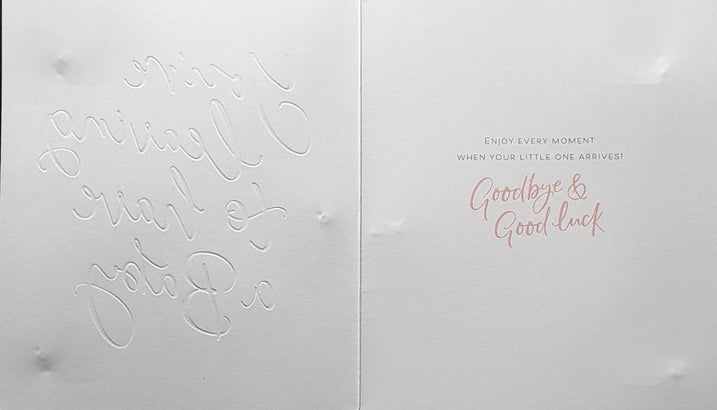 You're
leaving
to have
a Baby
ENJOY EVERY MOMENT
WHEN YOUR LITTLE ONE ARRIVES!
Goodbye &
Good luck